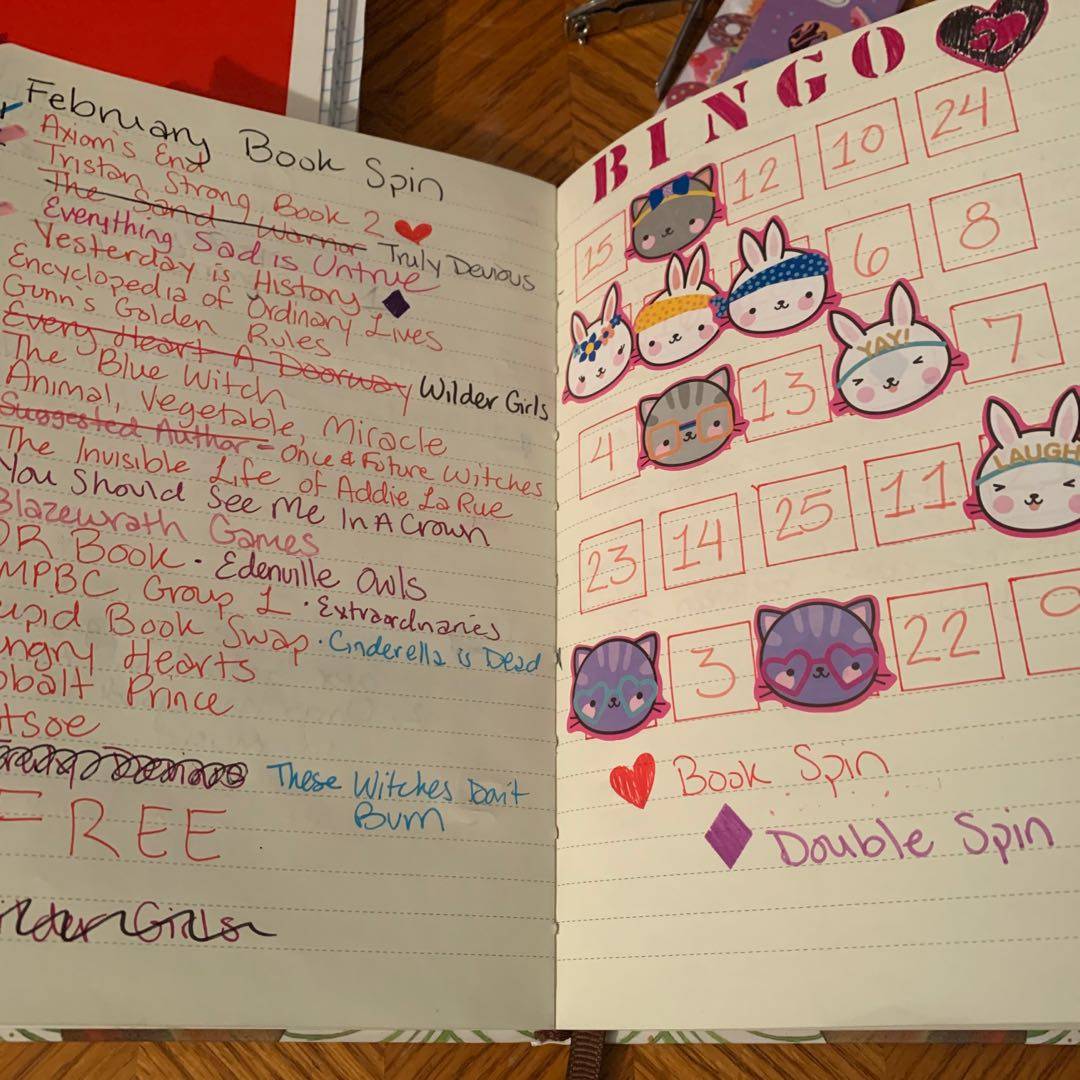 February Book Spin
Axiom's End
Tristan Strong Book 2
The Sand Warrior Truly Devious
Everything Sad is Untrue
Yesterday is History
Encyclopedia of Ordinary Lives
Gunn's Golden Rules
Every Heart A Doorway Wilder Girls
The Blue Witch
Animal, Vegetable, Miracle
Suggested Author = Once & Future Witches
The Invisible Life of Addie La Rue
You Should See Me In A Crown
Blazewrath Games
Book · Edenville Owls
MPBC Group 1 · Extraordnaries
Book Swap · Cinderella is Dead
Hearts
Prince
These Witches Don't
Burn
FREE
Girls
BINGO
15 12 10 24
6 8
YAY!
4 13 7
LAUGH
23 14 25 11
3 22
Book Spin
Double Spin